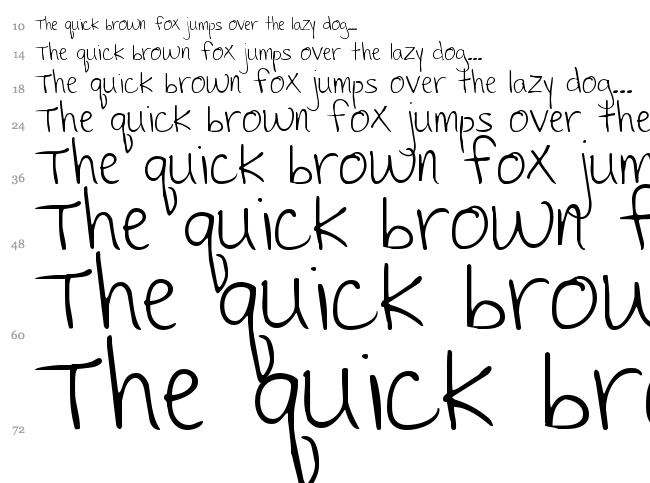 10 The quick brown fox jumps over the lazy dog...
14 The quick brown fox jumps over the lazy dog...
18 The quick brown fox jumps over the lazy dog...
24 The quick brown fox jumps over the
36 The quick brown fox jum
48 The quick brown f
60 The quick brow
72 The quick bro